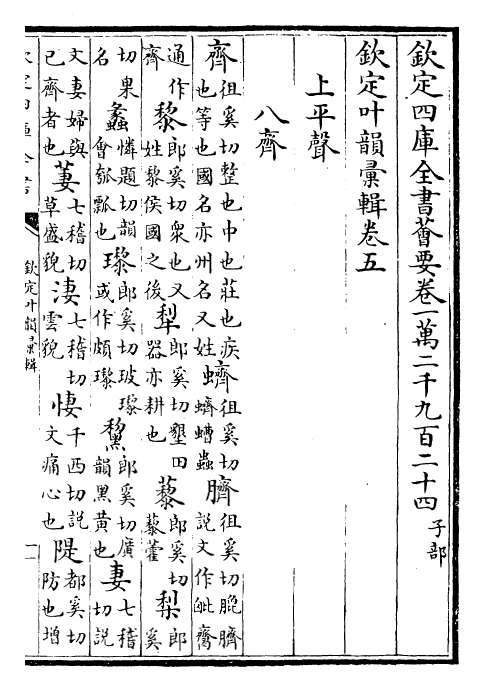 欽定四庫全書薈要卷一萬二千九百二十四 子部
欽定叶韻彙輯卷五
上平聲
八齊
齊徂奚切整也中也莊也疾也等也國名亦州名又姓 蠐徂奚切蠐螬蟲 臍徂奚切肶臍說文作
通作齊 黎郎奚切衆也又姓黎侯國之後 犂郎奚切墾田器亦耕也 藜郎奚切藜藿 梨郎奚
切果名 蠡憐題切韻會瓠瓢也 瓈郎奚切玻瓈或作頗瓈 黧郎奚切廣韻黑黄也 妻七稽切說
文妻婦與已齊者也 萋七稽切草盛貌 淒七稽切雲貌 悽千西切說文痛心也 隄都奚切防也增
欽定四庫全書
欽定叶韻彙輯
一